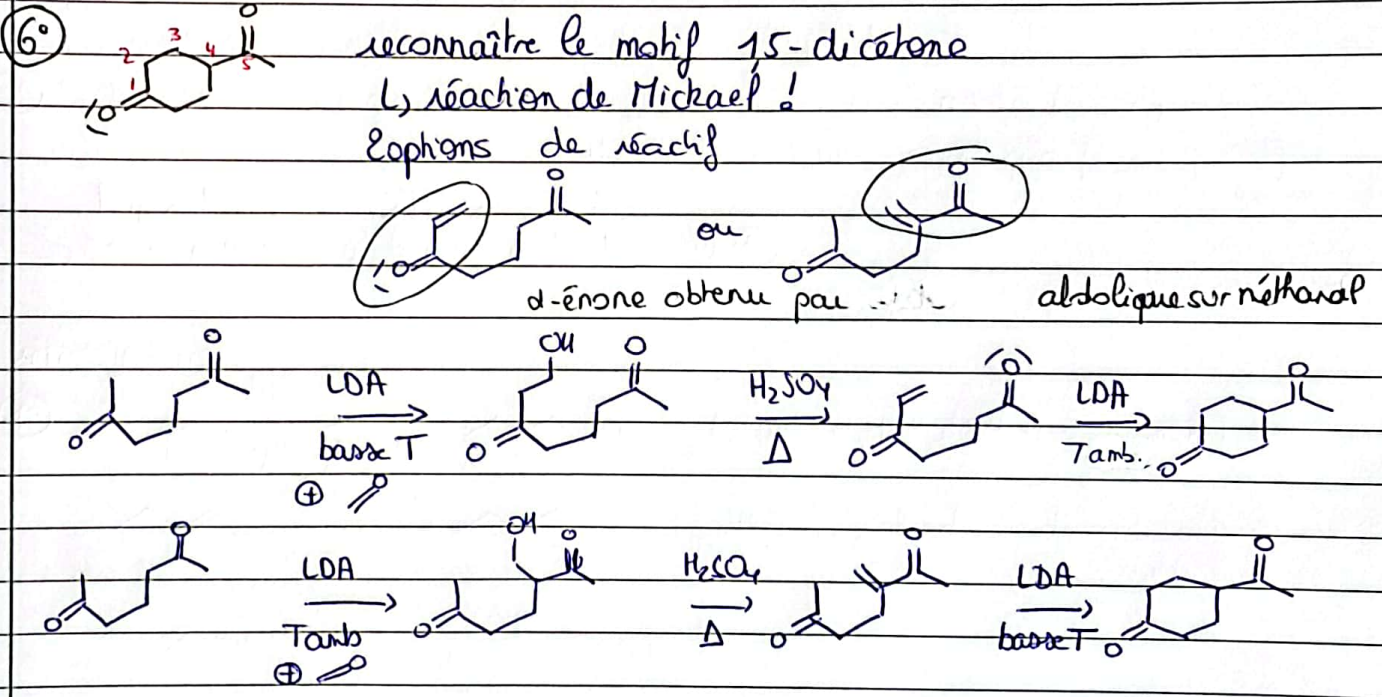 6°
O
3
2
4
1
5
O
reconnaître le motif 1,5-dicétone
↳ réaction de Mickaël !
2 options de réactif
O
O
ou
O
O
α-énone obtenu par
aldolique sur méthanal
O
O
LDA
basse T
⊕
O
OH
O
O
H₂SO₄
Δ
O
O
LDA
Tamb.
O
O
O
O
LDA
Tamb
⊕
O
OH
O
O
H₂SO₄
Δ
O
O
LDA
basse T
O
O